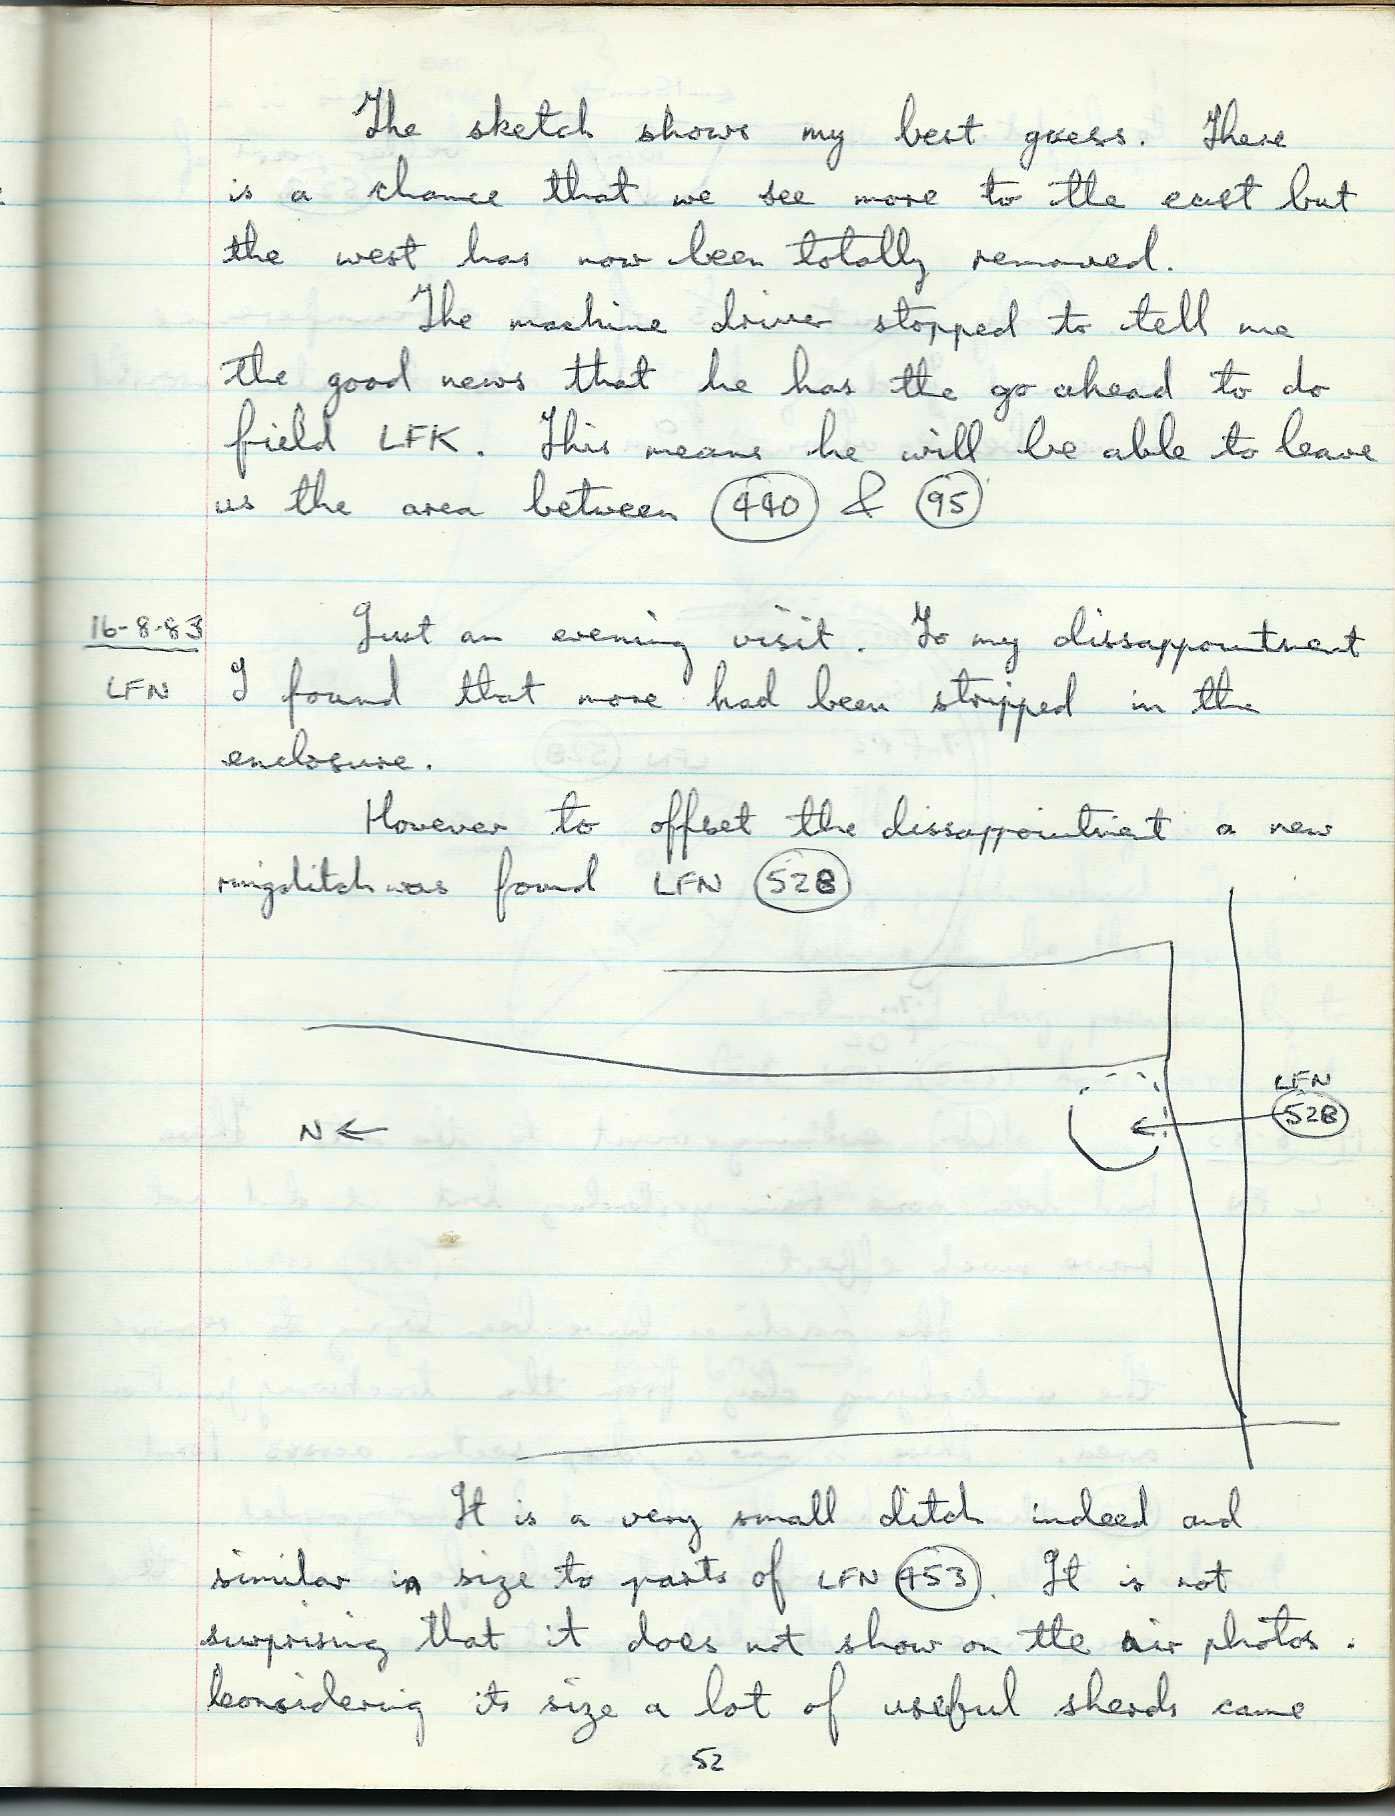 The sketch shows my best guess. There
is a chance that we see more to the east but
the west has now been totally removed.
The machine driver stopped to tell me
the good news that he has the go ahead to do
field LFK. This means he will be able to leave
us the area between 440 & 95
16-8-83
Just an evening visit. To my dissappointment
LFN
I found that more had been stripped in the
enclosure.
However to offset the dissappointment a new
ringditch was found LFN 528
LFN
528
N
It is a very small ditch indeed and
similar in size to parts of LFN 453. It is not
surprising that it does not show on the air photos.
Considering its size a lot of useful sherds came
52